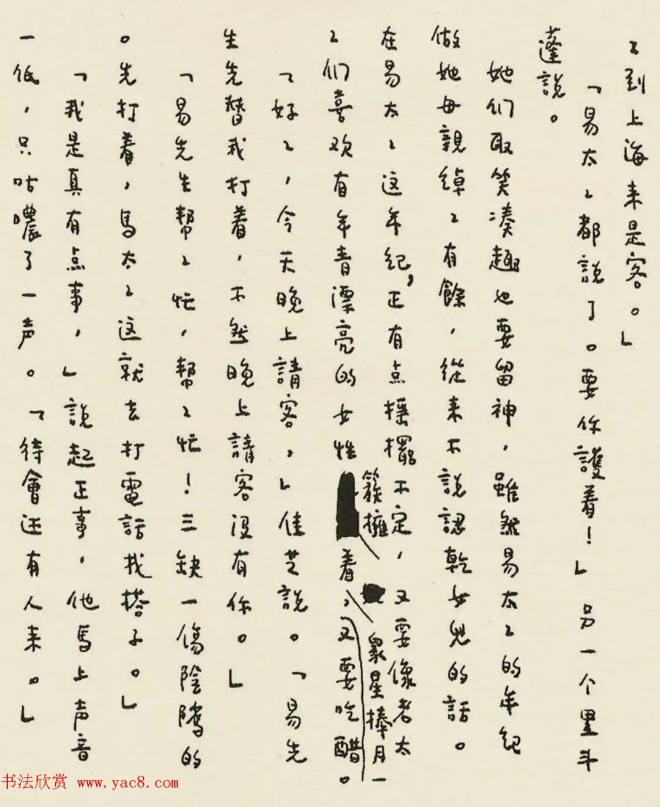 〻到上海来是客。」
「易太〻都說了。要你護着！」另一个黑斗
蓬說。
她们取笑凑趣也要留神，雖然易太〻的年紀
做她母親綽〻有餘，從来不說認乾女兒的話。
在易太〻这年紀，正有点摇擺不定，又要像老太
〻们喜欢有年青漂亮的女性簇擁着，眾星捧月一
又要吃醋。
「好〻，今天晚上請客，」佳芝說。「易先
生先替我打着，不然晚上請客没有你。」
「易先生幫〻忙，幫〻忙！三缺一傷陰隲的
。先打着，馬太〻这就去打電話找搭子。」
「我是真有点事，」說起正事，他馬上声音
一低，只咕噥了一声。「待會还有人来。」
书法欣赏 www.yac8.com